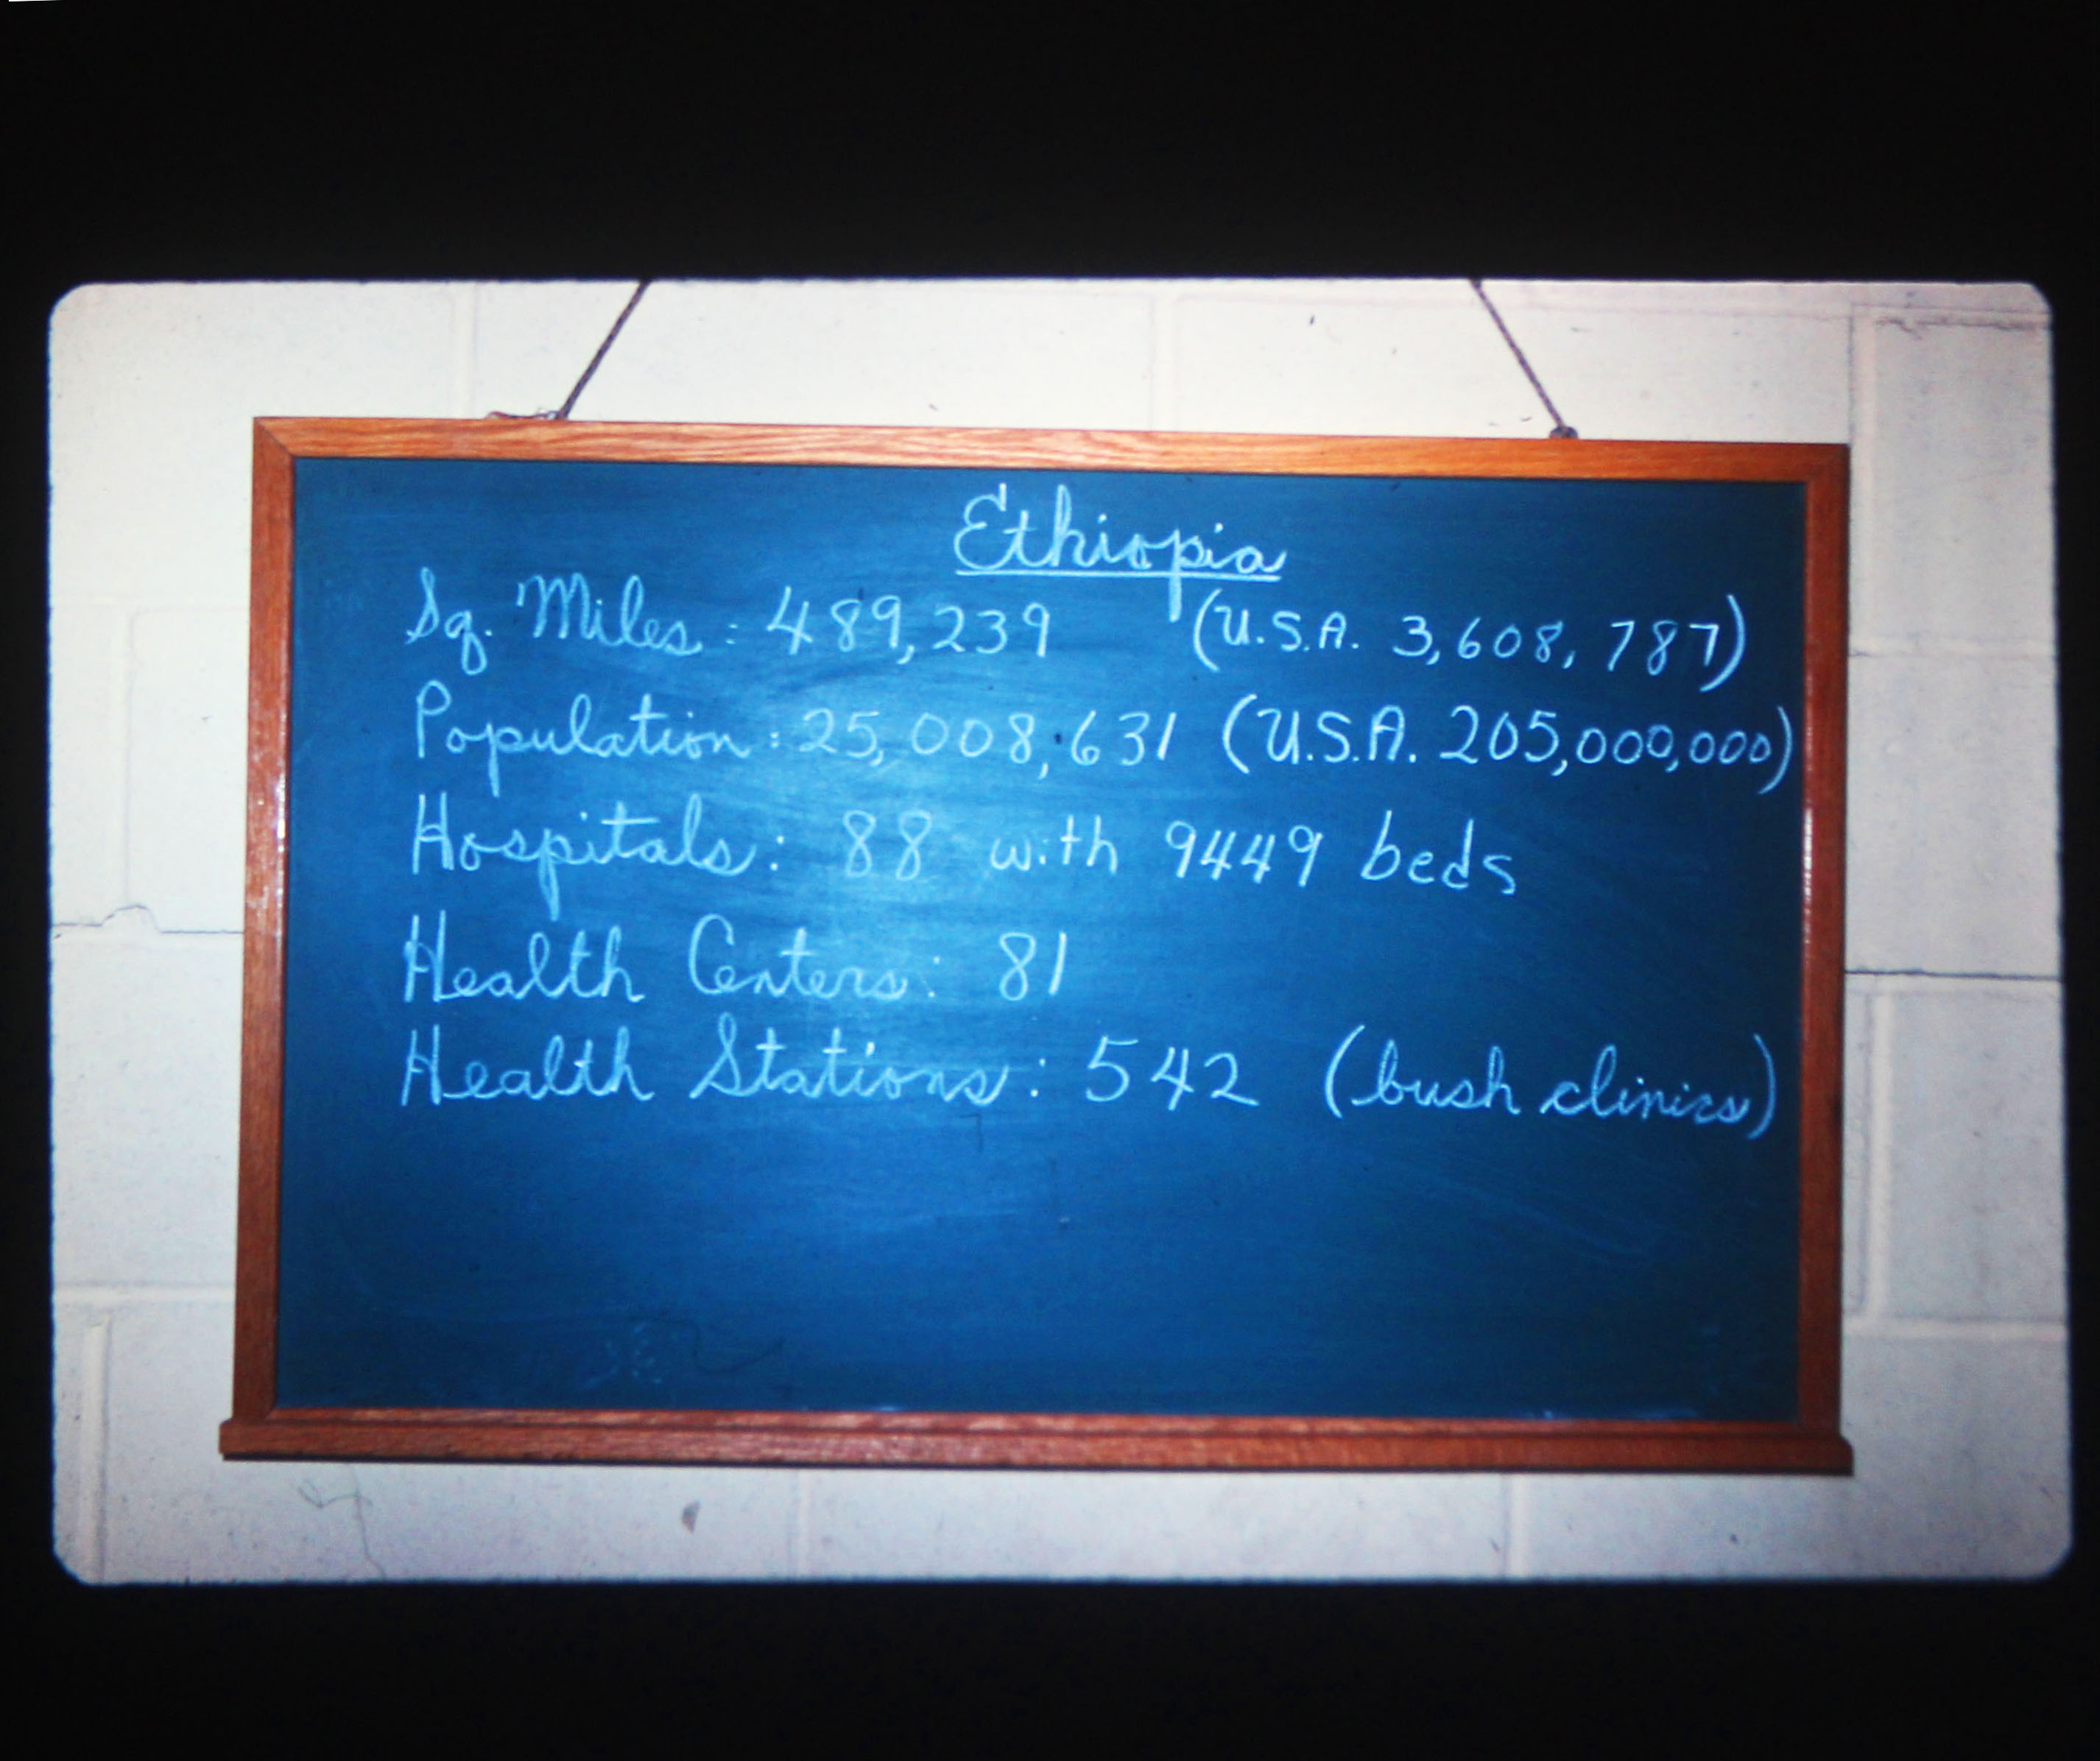 Ethiopia
Sq. Miles: 489,239 (U.S.A. 3,608,787)
Population: 25,008,631 (U.S.A. 205,000,000)
Hospitals: 88 with 9449 beds
Health Centers: 81
Health Stations: 542 (bush clinics)